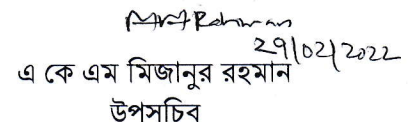 29/02/2022
এ কে এম মিজানুর রহমান
উপসচিব